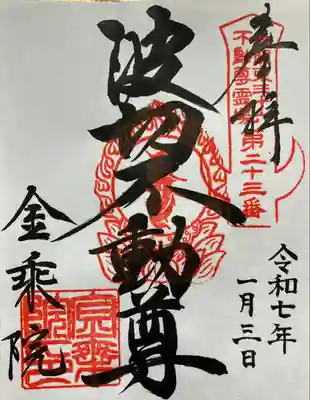 奉拝
不動尊霊場第二十三番
令和七年
一月三日
波切不動尊
金乗院